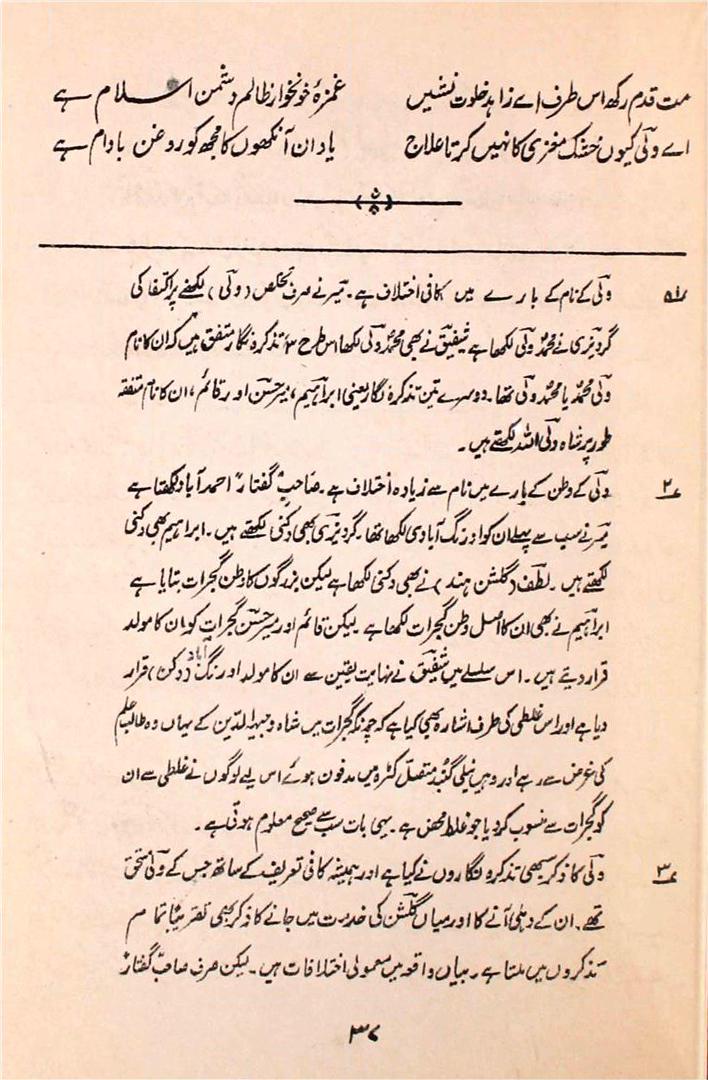 مت قدم رکھ اس طرف اے زاہد خلوت نشیں غمزۂ خونخوار ظالم دشمن اسلام ہے
اے ولی کیوں خشک مغزی کا نہیں کرتا علاج یاد ان آنکھوں کا مجھ کو روغن بادام ہے
۱ ولی کے نام کے بارے میں کافی اختلاف ہے۔ میر نے صرف تخلص (ولی) لکھنے پر اکتفا کی
گردیزی نے محمد ولی لکھا ہے شفیق نے بھی محمد ولی لکھا اس طرح ۳ تذکرہ نگار متفق ہیں کہ ان کا نام
ولی محمد یا محمد ولی تھا۔ دوسرے تین تذکرہ نگار یعنی ابراہیم، میر حسن اور قائم، ان کا نام متفقہ
طور پر شاہ ولی اللہ لکھتے ہیں۔
۲ ولی کے وطن کے بارے میں نام سے زیادہ اختلاف ہے۔ صاحب "گفتار" احمد آباد لکھتا ہے
میر نے سب سے پہلے ان کو اورنگ آبادی لکھا تھا۔ گردیزی بھی دکنی لکھتے ہیں۔ ابراہیم بھی دکنی
لکھتے ہیں۔ لطف (گلشن ہند) نے بھی دکنی لکھا ہے لیکن بزرگوں کا وطن گجرات بتایا ہے
ابراہیم نے بھی ان کا اصل وطن گجرات لکھا ہے۔ لیکن قائم اور میر حسن گجرات کو ان کا مولد
قرار دیتے ہیں۔ اس سلسلے میں شفیق نے نہایت یقین سے ان کا مولد اورنگ آباد (دکن) قرار
دیا ہے اور اس غلطی کی طرف اشارہ بھی کیا ہے کہ چونکہ گجرات میں شاہ وجیہ الدین کے یہاں وہ طالب علم
کی غرض سے رہے اور وہیں نیلی گنبد متصل کٹرہ میں مدفون ہوئے اس لیے لوگوں نے غلطی سے ان
کو گجرات سے منسوب کر دیا جو غلط محض ہے۔ یہی بات سب سے صحیح معلوم ہوتی ہے۔
۳ ولی کا ذکر سبھی تذکرہ نگاروں نے کیا ہے اور ہمیشہ کافی تعریف کے ساتھ جس کے ولی مستحق
تھے۔ ان کے دہلی آنے کا اور میاں گلشن کی خدمت میں جانے کا ذکر بھی تقریباً تمام
تذکروں میں ملتا ہے۔ بیان واقعہ میں معمولی اختلافات ہیں۔ لیکن صرف صاحب گفتار
۳۷